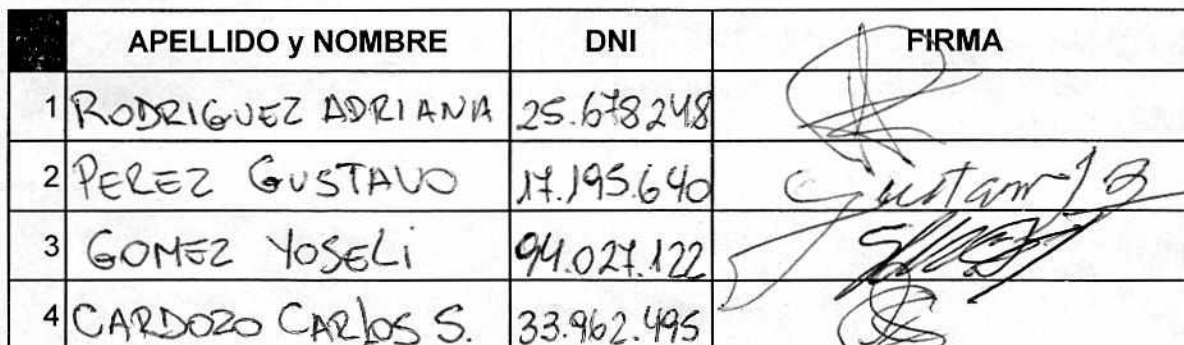 APELLIDO y NOMBRE DNI FIRMA
1 RODRIGUEZ ADRIANA 25.678.248
2 PEREZ GUSTAVO 17.195.640
3 GOMEZ YOSELi 94.027.122
4 CARDOZO CARlOS S. 33.962.495